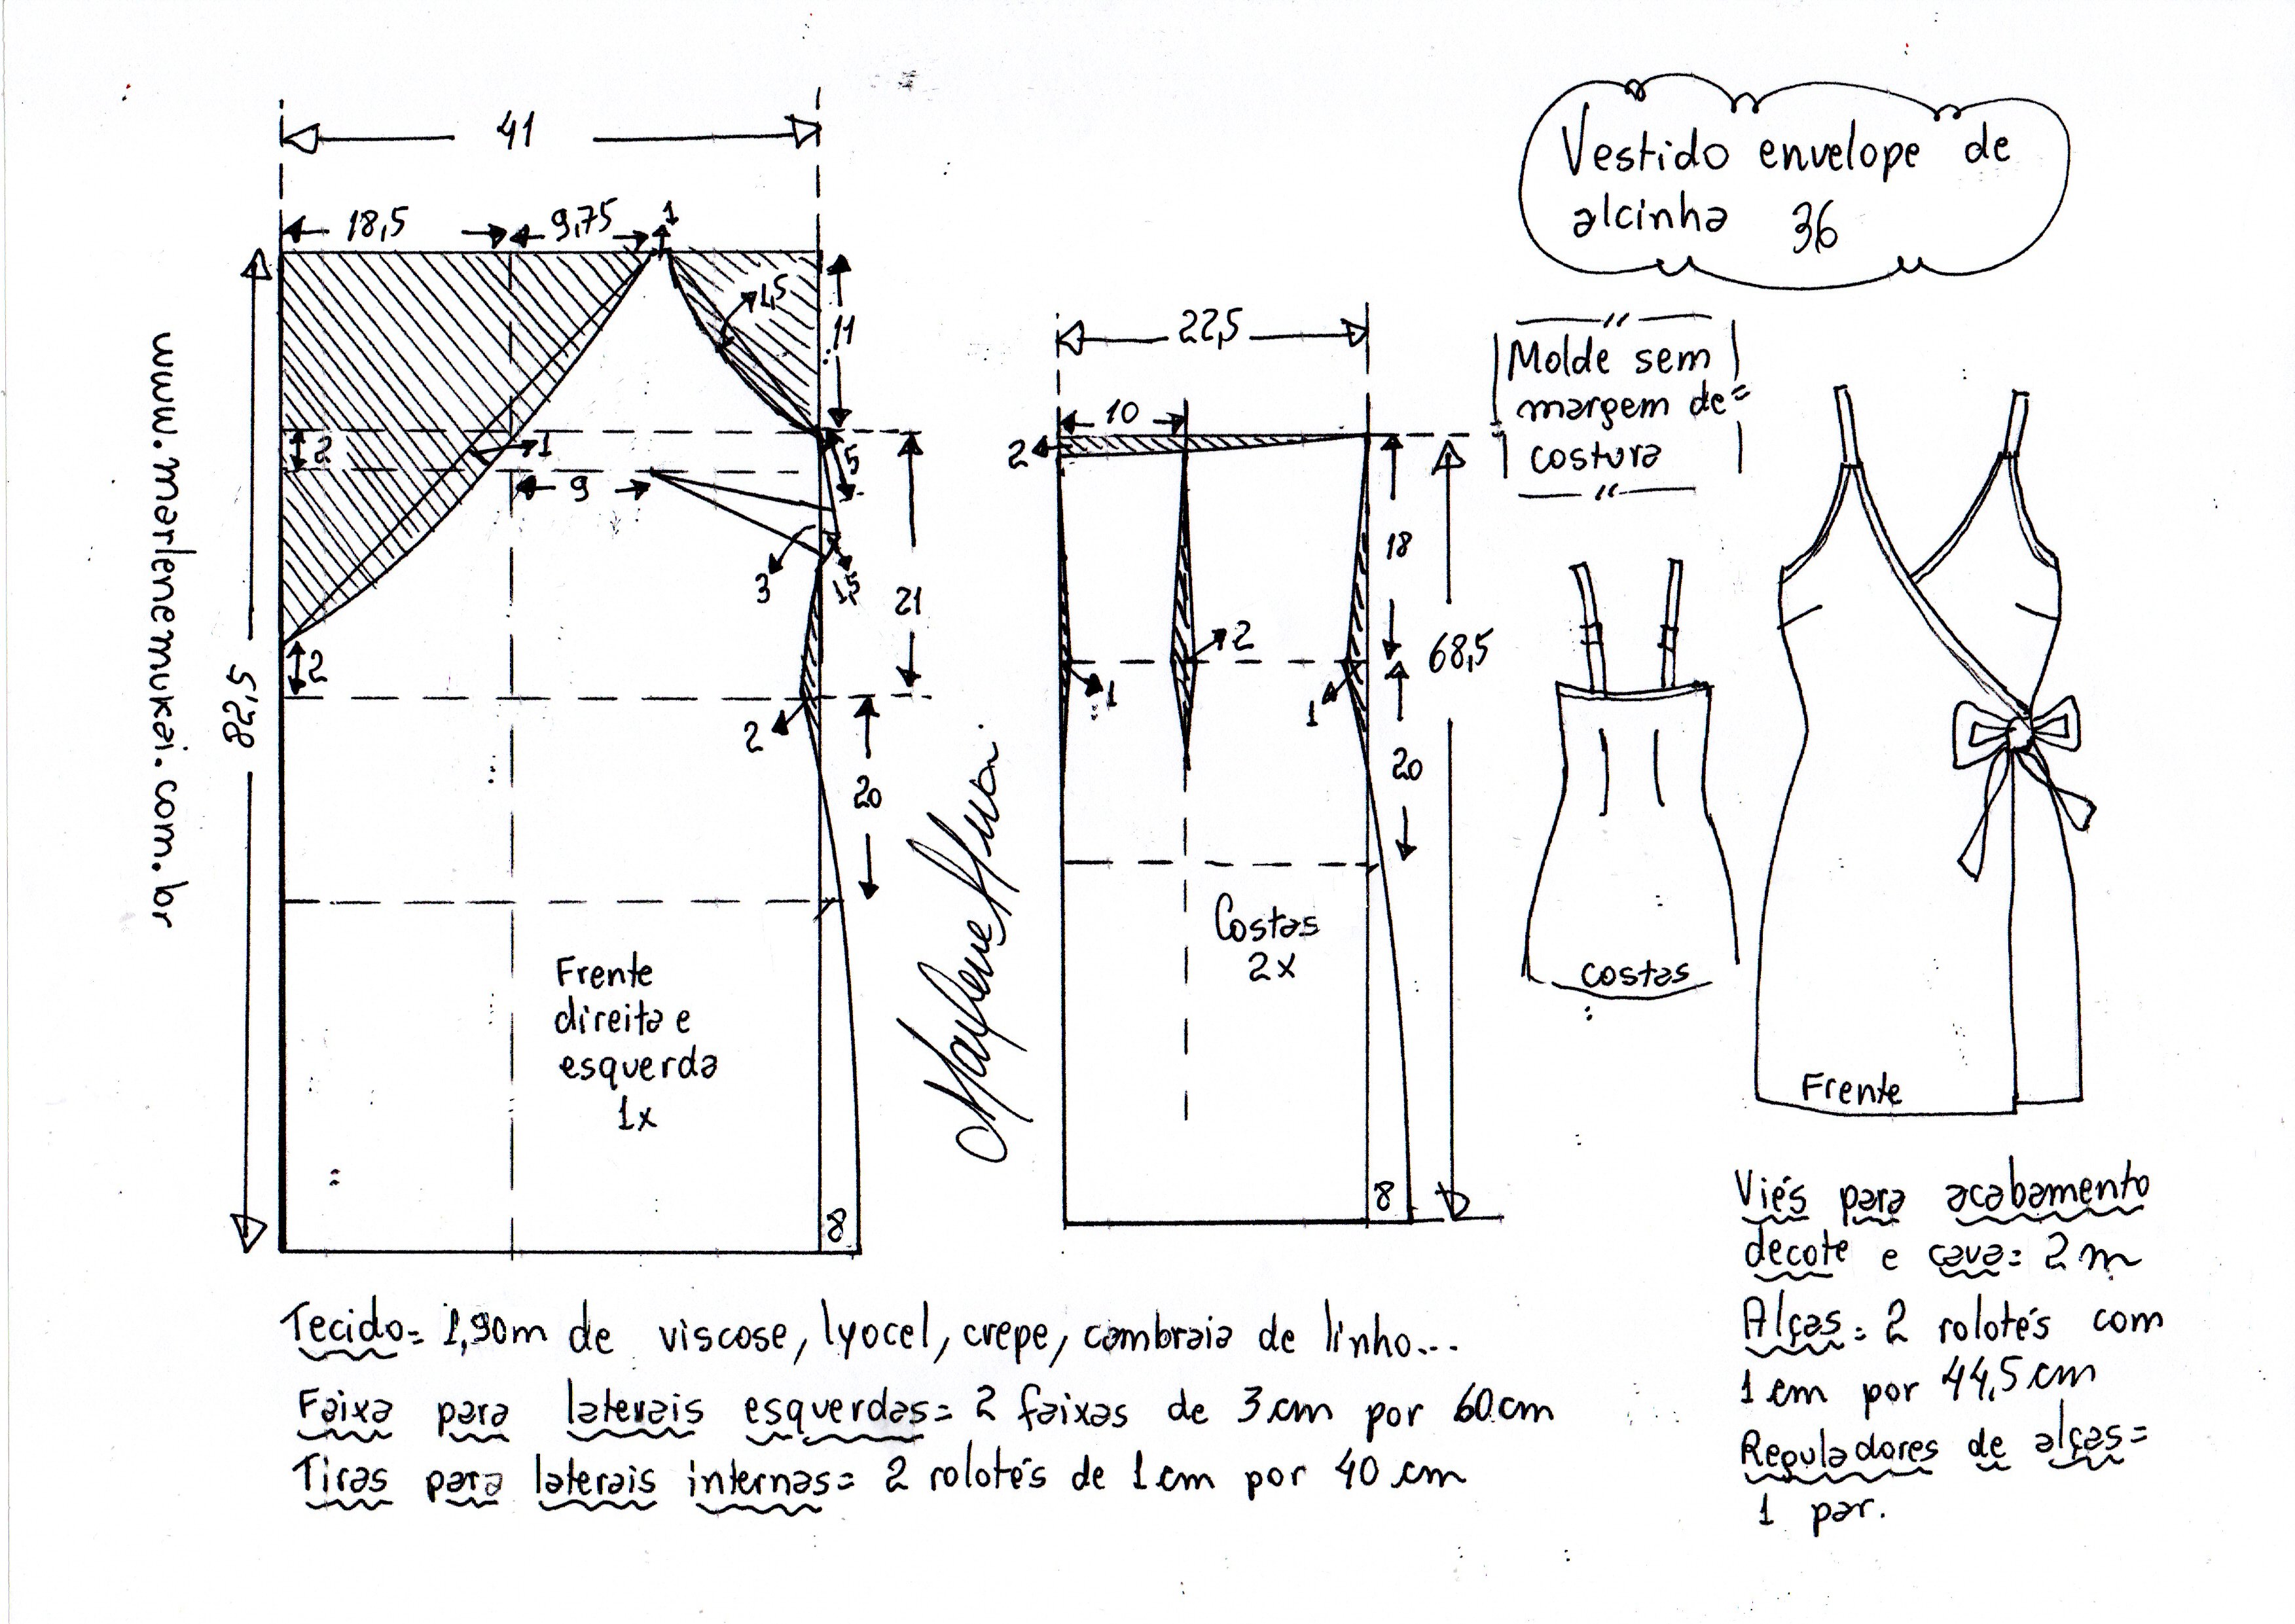 Vestido envelope de
alcinha 36
Molde sem
margem de
costura
41
18,5
9,75
1
1,5
11
2
1
5
9
3
1,5
21
2
2
20
82,5
Frente
direita e
esquerda
1x
8
www.marlenemukai.com.br
22,5
10
2
18
2
68,5
1
1
20
Costas
2x
8
costas
Frente
Tecido= 1,90m de viscose, lyocel, crepe, cambraia de linho...
Faixa para laterais esquerdas= 2 faixas de 3 cm por 60 cm
Tiras para laterais internas= 2 rolotés de 1 cm por 40 cm
Viés para acabamento
decote e cava= 2 m
Alças= 2 rolotés com
1 cm por 44,5 cm
Reguladores de alças=
1 par.